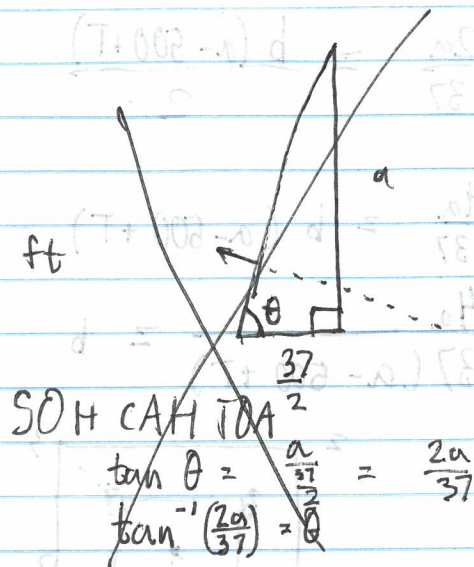 a
ft
θ
37/2
SOH CAH TOA
tan θ = a/(37/2) = 2a/37
tan⁻¹(2a/37) = θ